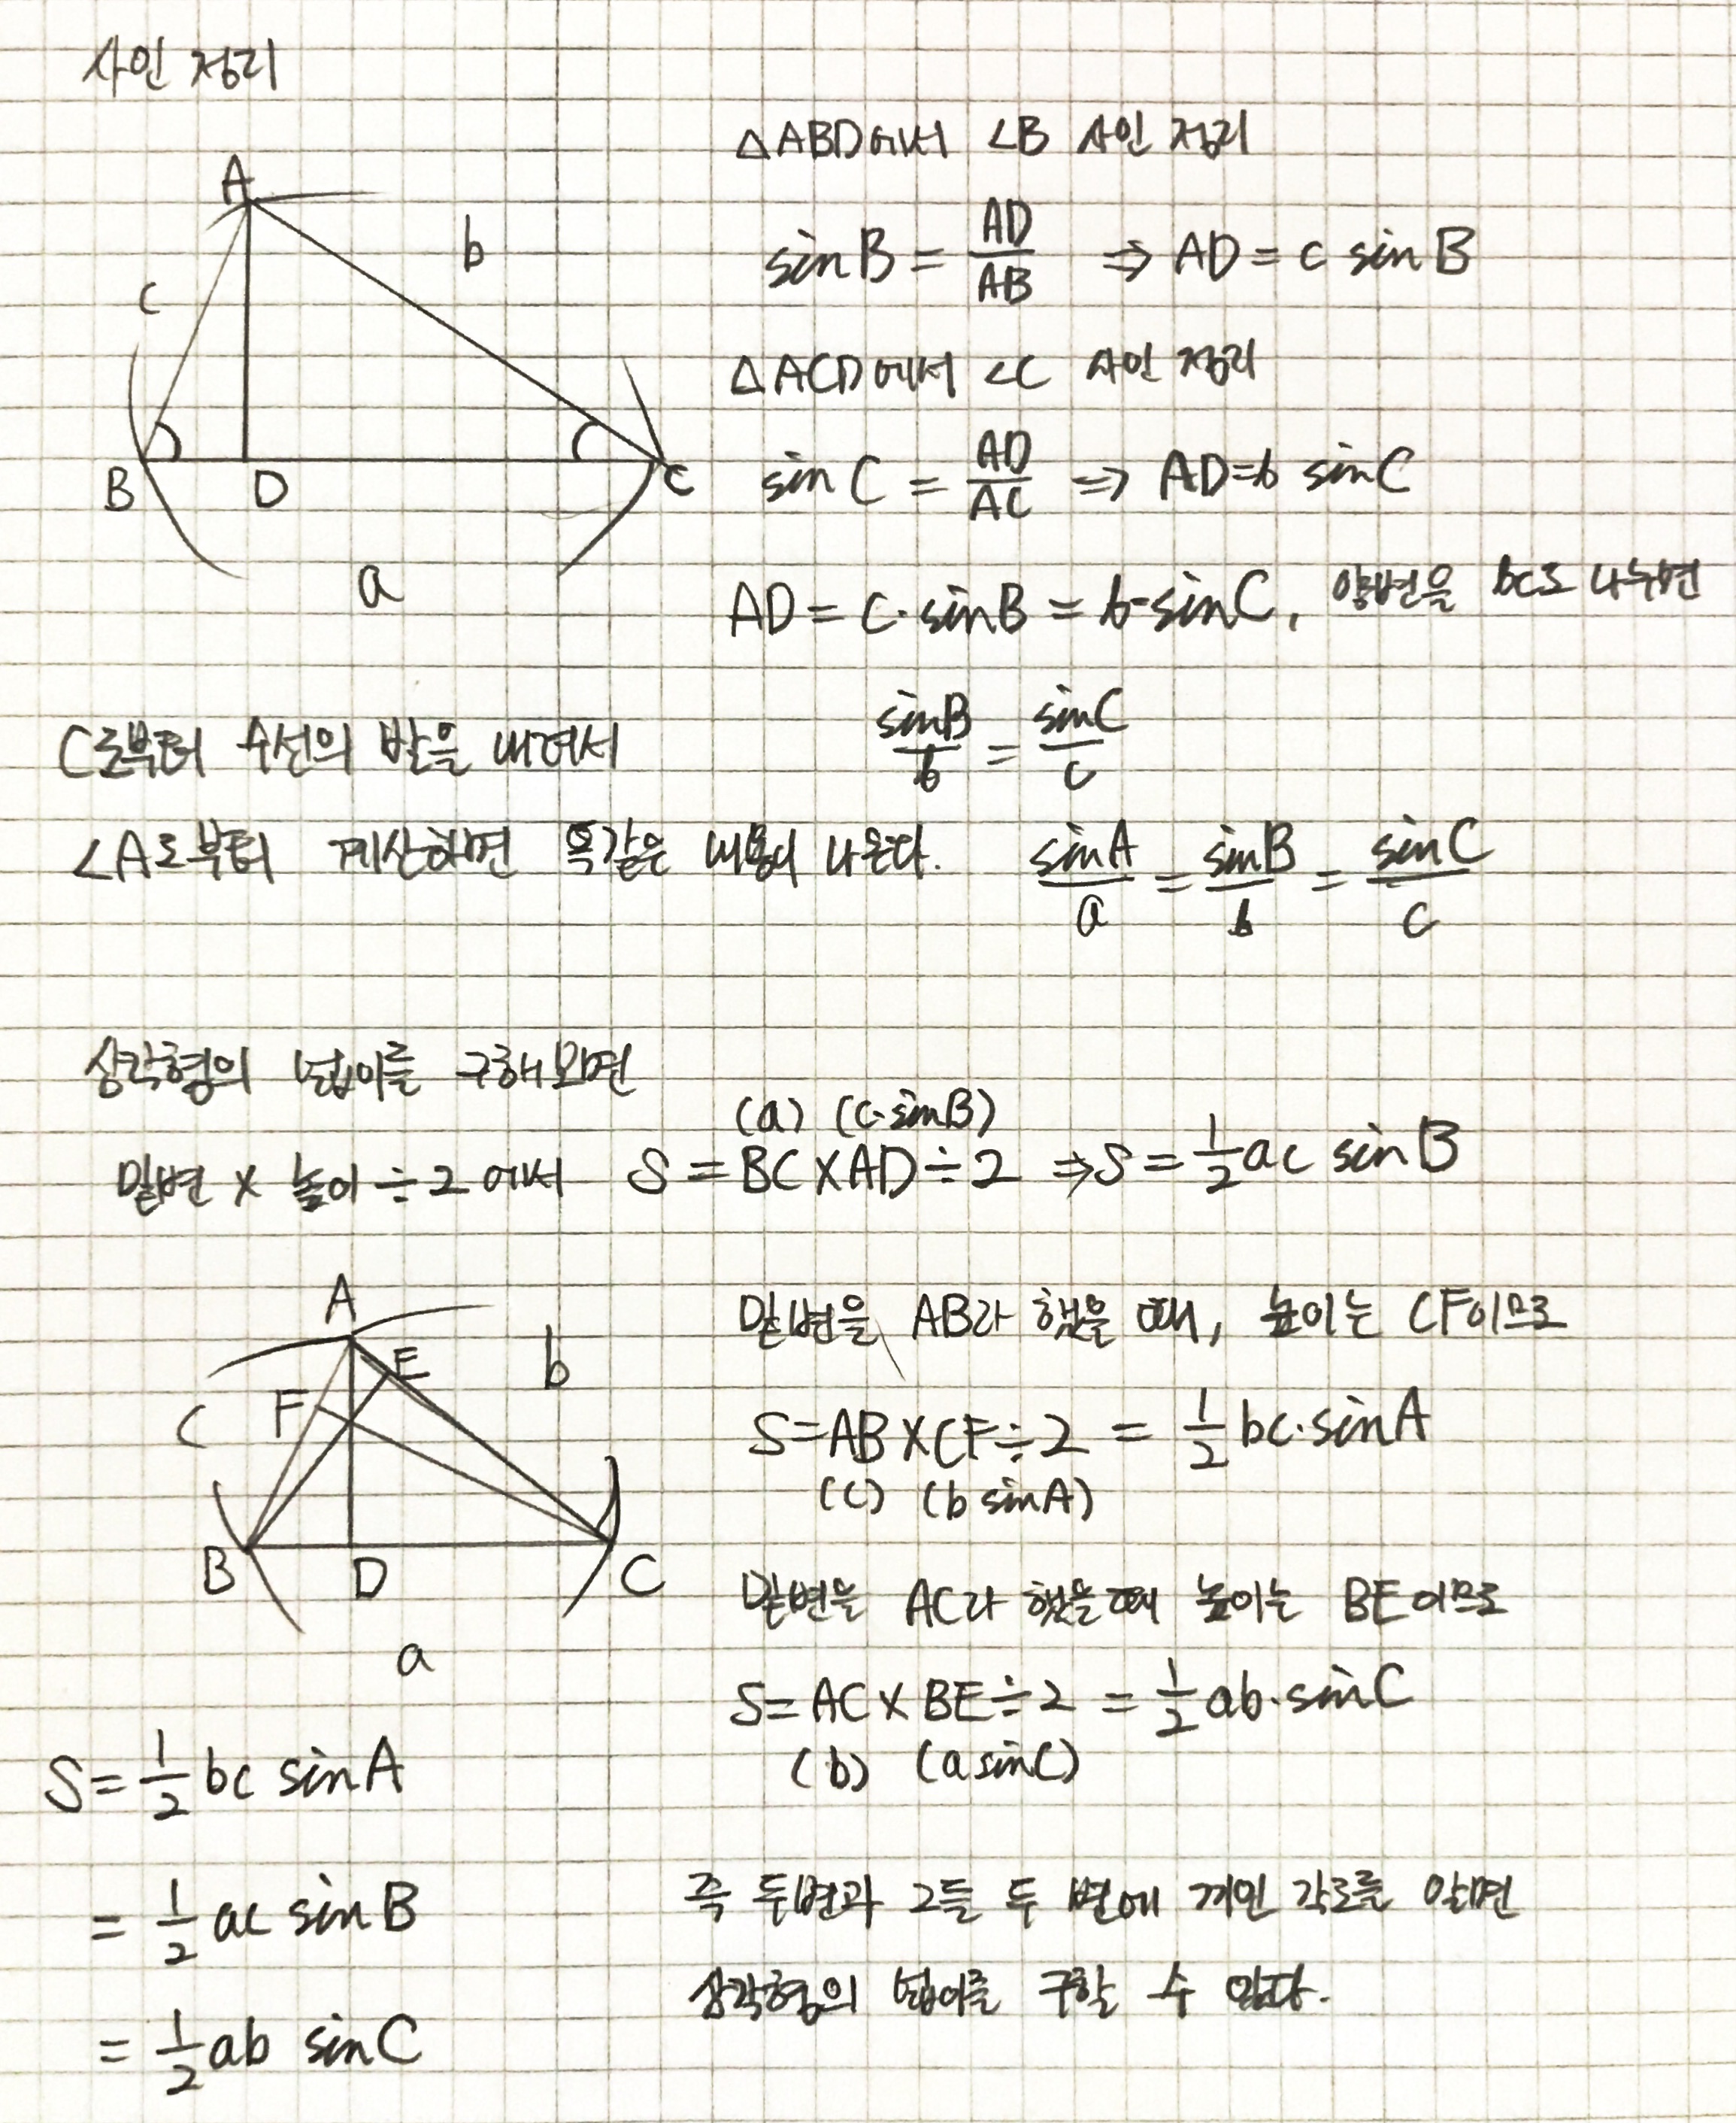 사인 정리
△ABD에서 ∠B 사인 정리
A
b
c
B
D
C
a
sin B = AD/AB ⇒ AD = c sin B
△ACD에서 ∠C 사인 정리
sin C = AD/AC ⇒ AD=b sin C
AD = c·sinB = b·sinC, 양변을 bc로 나누면
sinB/b = sinC/c
C로부터 수선의 발을 내려서
∠A로부터 계산하면 똑같은 내용이 나온다. sinA/a = sinB/b = sinC/c
삼각형의 넓이를 구해보면
(a) (c·sinB)
밑변 × 높이 ÷ 2 에서 S = BC × AD ÷ 2 ⇒ S = 1/2 ac sin B
A
E
b
F
c
B
D
C
a
밑변을 AB라 했을 때, 높이는 CF이므로
S=AB×CF÷2 = 1/2 bc·sinA
(c) (b sinA)
밑변을 AC라 했을때 높이는 BE이므로
S=AC×BE÷2 = 1/2 ab·sinC
(b) (a sinC)
S = 1/2 bc sin A
= 1/2 ac sin B
= 1/2 ab sin C
즉 두변과 그들 두 변에 끼인 각도를 알면
삼각형의 넓이를 구할 수 있다.